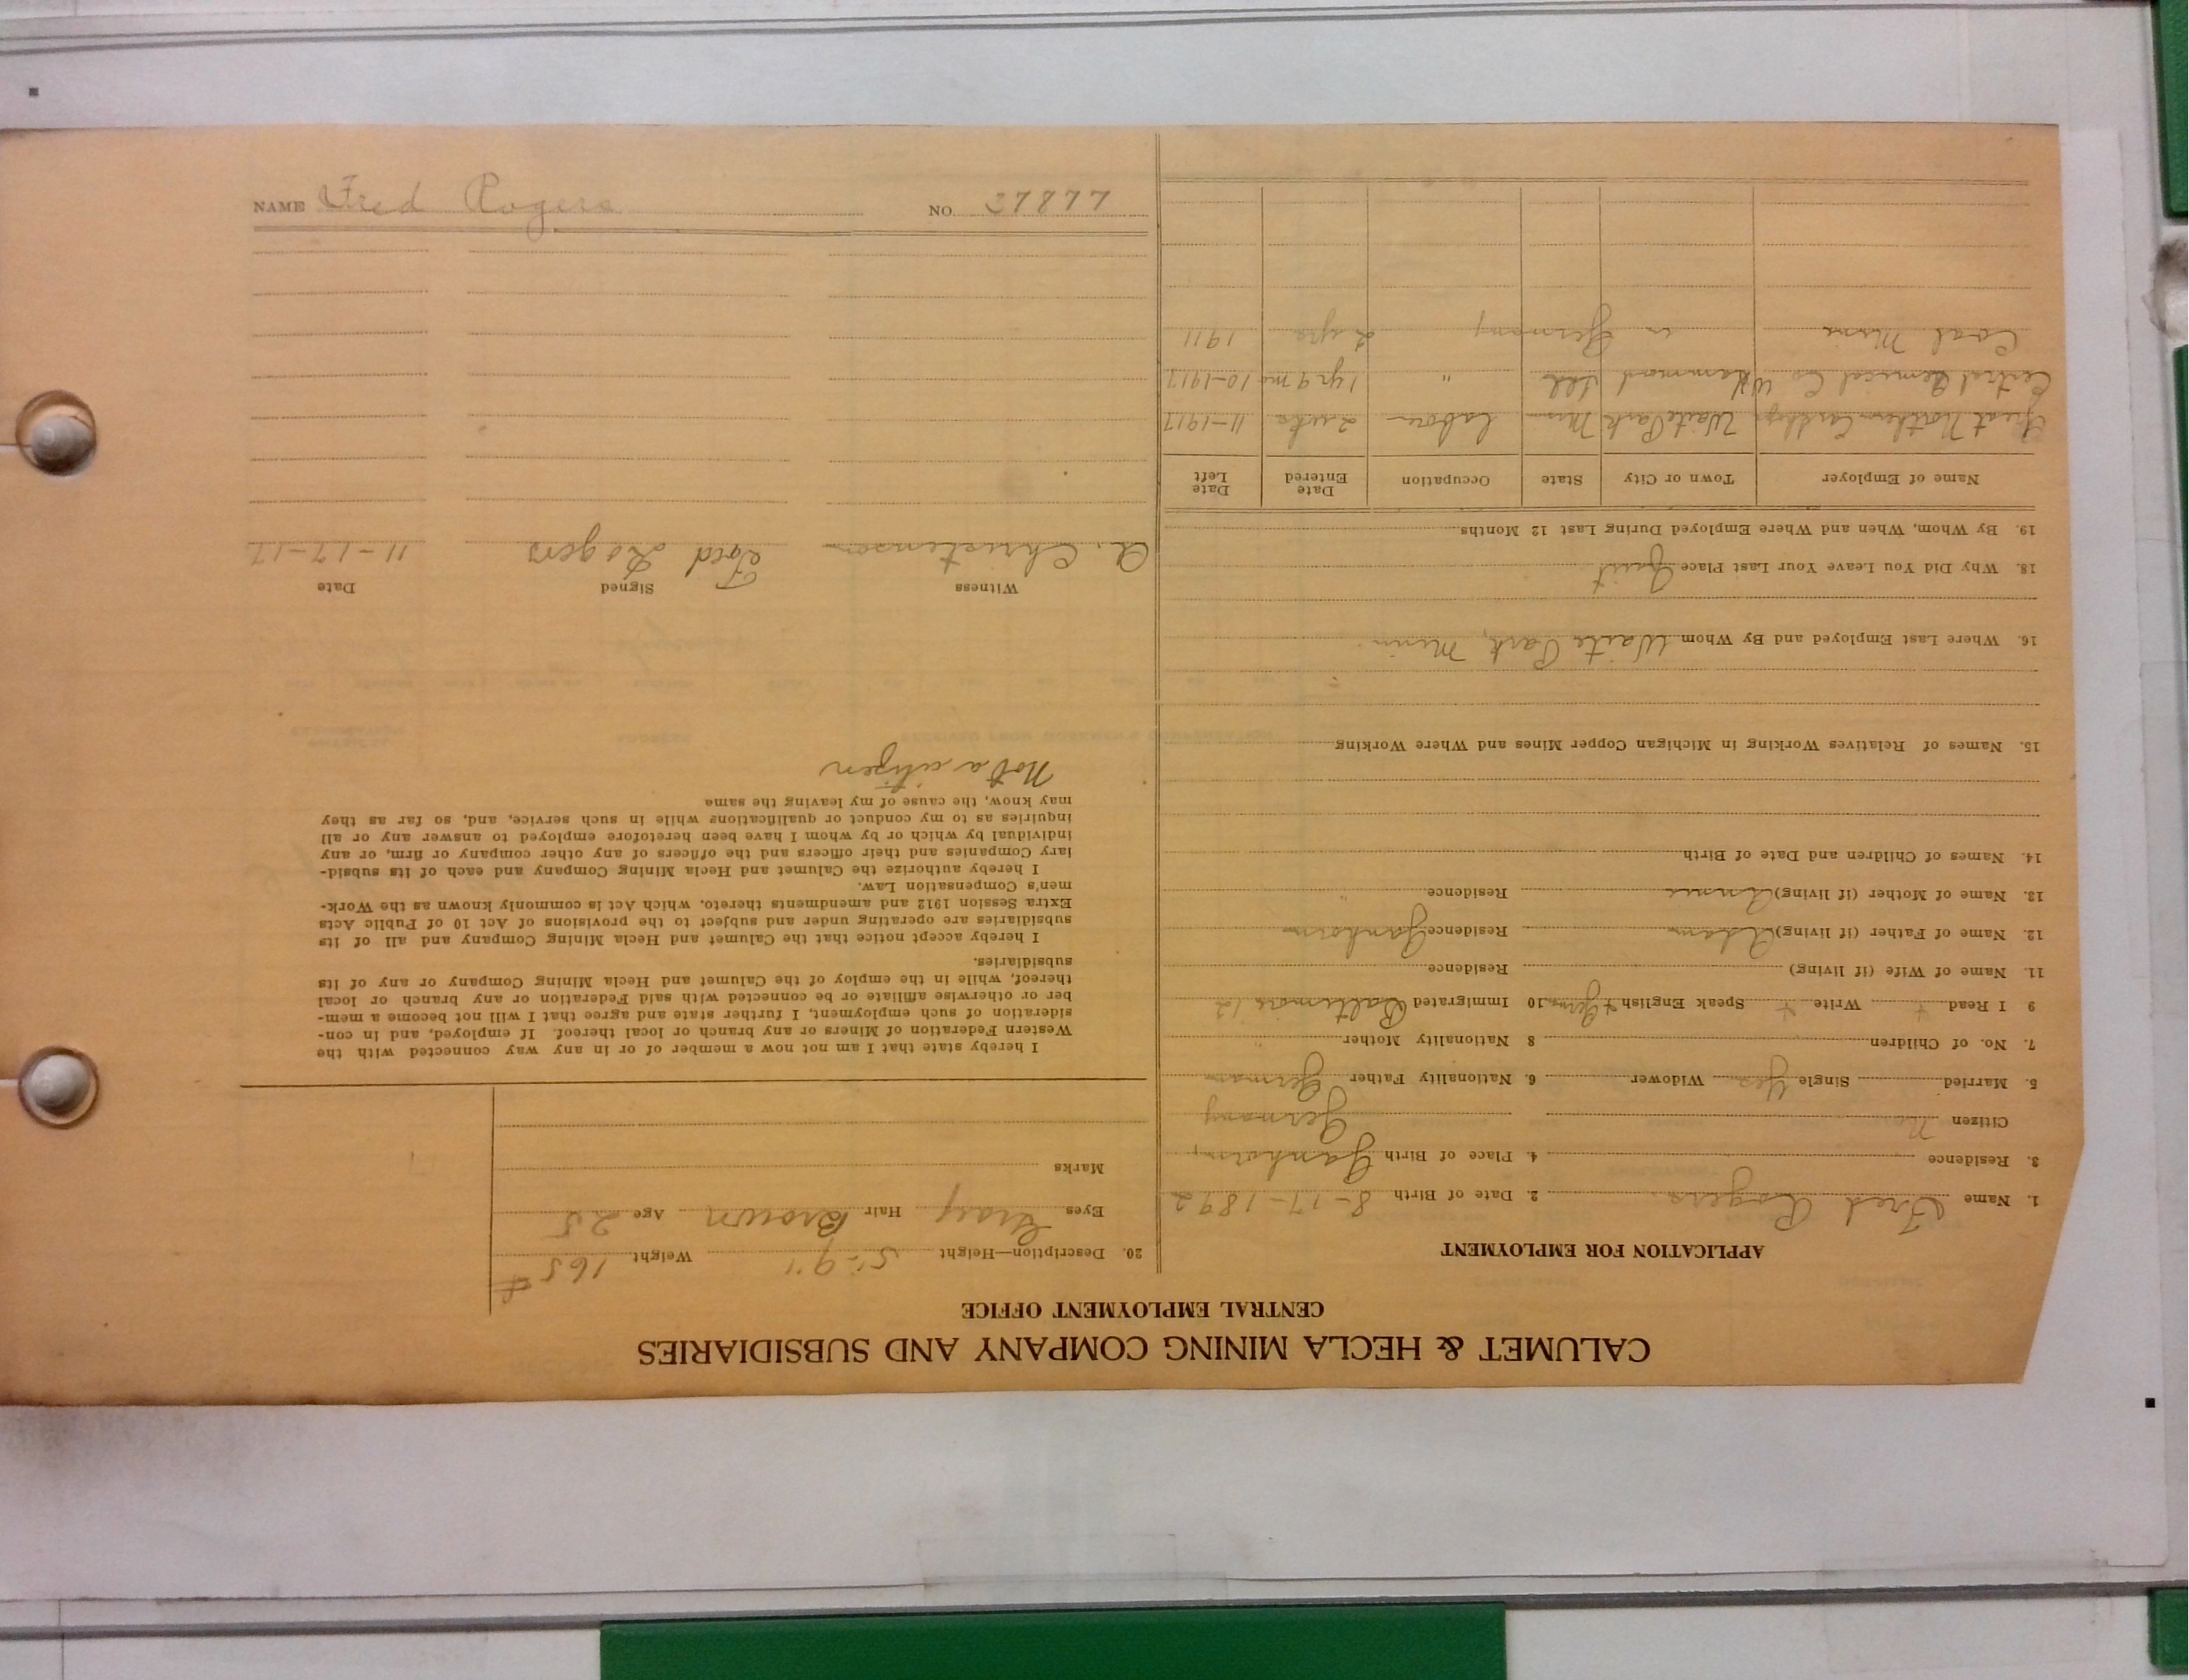 CALUMET & HECLA MINING COMPANY AND SUBSIDIARIES
CENTRAL EMPLOYMENT OFFICE
APPLICATION FOR EMPLOYMENT
1. Name Fred Rogers. 2. Date of Birth 8-17-1892
3. Residence 4. Place of Birth
Citizen No Germany
5. Married Single Yes Widower 6. Nationality Father German
7. No. of Children 8 Nationality Mother "
9 I Read + Write + Speak English + Germ 10 Immigrated Baltimore 12
11. Name of Wife (if living) Residence
12. Name of Father (if living) Adam Residence
13. Name of Mother (if living) Annie Residence "
14. Names of Children and Date of Birth
15. Names of Relatives Working in Michigan Copper Mines and Where Working
16. Where Last Employed and By Whom Waite Park, Minn.
18. Why Did You Leave Your Last Place Quit
19. By Whom, When and Where Employed During Last 12 Months
Name of Employer Town or City State Occupation Date Entered Date Left
Great Northern Car Shops Waite Park Minn Labor 2 wks 11-1917
Central Chemical Co Hammond Ill " 1 yr 9 mo 10-1917
Coal Mine in Germany 2 yrs 1911
20. Description—Height 5'-9" Weight 165 #
Eyes Gray Hair Brown Age 25
Marks
I hereby state that I am not now a member of or in any way connected with the
Western Federation of Miners or any branch or local thereof. If employed, and in con-
sideration of such employment, I further state and agree that I will not become a mem-
ber or otherwise affiliate or be connected with said Federation or any branch or local
thereof, while in the employ of the Calumet and Hecla Mining Company or any of its
subsidiaries.
I hereby accept notice that the Calumet and Hecla Mining Company and all of its
subsidiaries are operating under and subject to the provisions of Act 10 of Public Acts
Extra Session 1912 and amendments thereto, which Act is commonly known as the Work-
men's Compensation Law.
I hereby authorize the Calumet and Hecla Mining Company and each of its subsid-
iary Companies and their officers and the officers of any other company or firm, or any
individual by which or by whom I have been heretofore employed to answer any or all
inquiries as to my conduct or qualifications while in such service, and, so far as they
may know, the cause of my leaving the same
Not a citizen
Witness Signed Date
A. Christensen Fred Rogers 11-17-17
NAME Fred Rogers NO. 37877